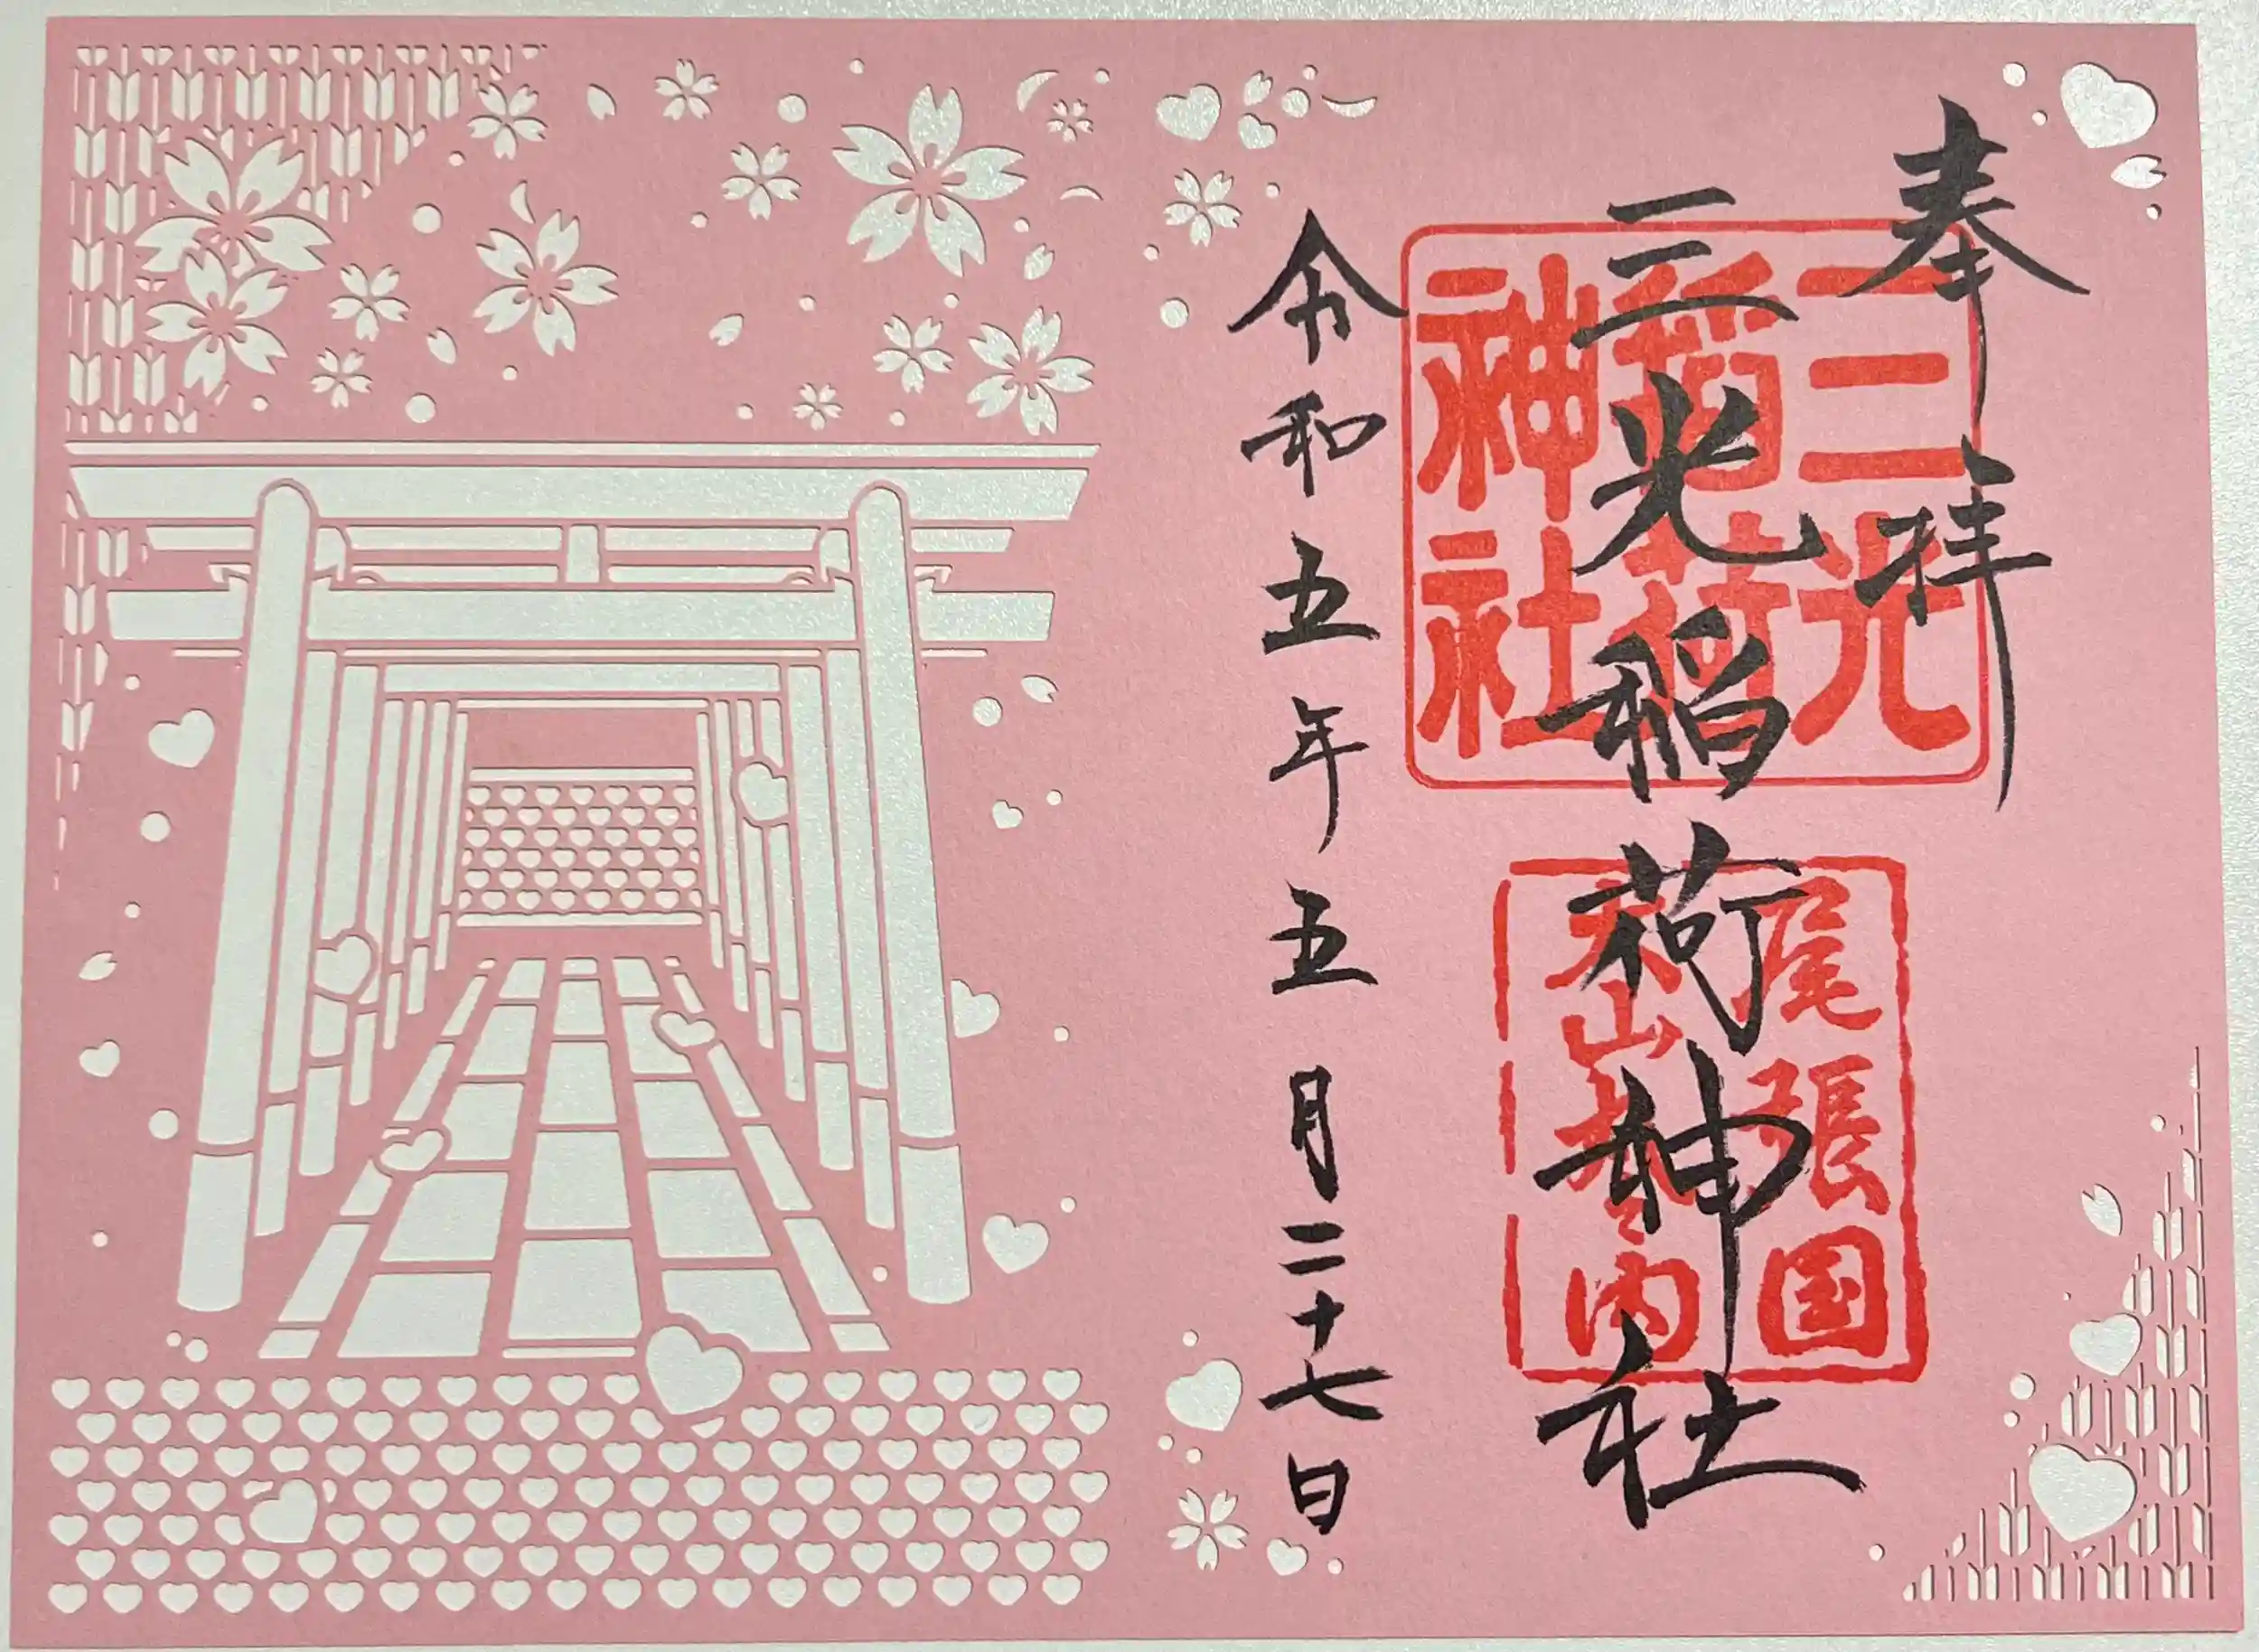 奉拝
三光稲荷神社
三光
稲荷
神社
尾張国
犬山城内
令和五年五月二十七日